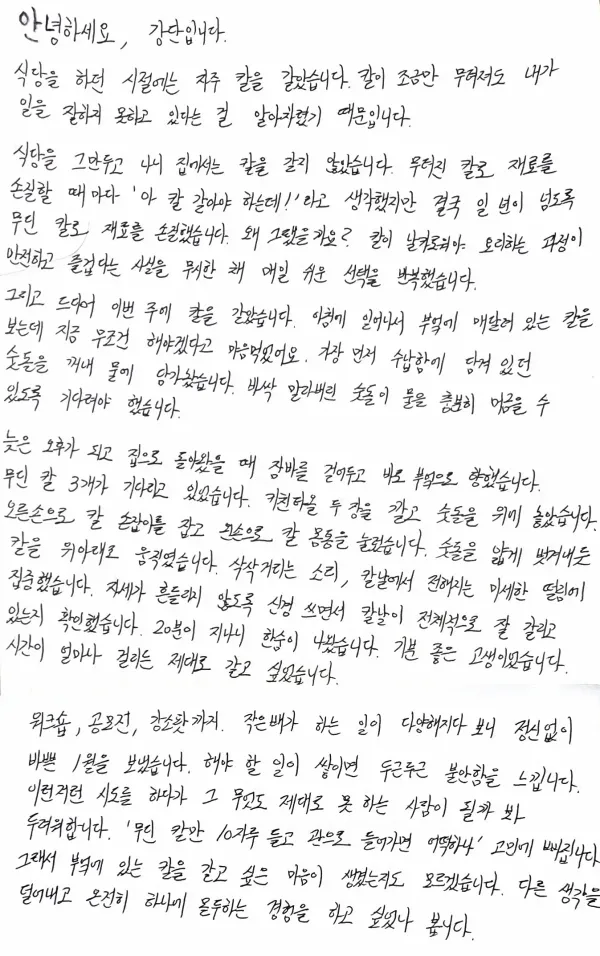 안녕하세요, 강단입니다.
식당을 하던 시절에는 자주 칼을 갈았습니다. 칼이 조금만 무뎌져도 내가
일을 잘하지 못하고 있다는 걸 알아차렸기 때문입니다.
식당을 그만두고 나니 집에서는 칼을 갈지 않았습니다. 무뎌진 칼로 재료를
손질할 때마다 '아 칼 갈아야 하는데!'라고 생각했지만 결국 일 년이 넘도록
무딘 칼로 재료를 손질했습니다. 왜 그랬을까요? 칼이 날카로워야 요리하는 과정이
안전하고 즐겁다는 사실을 무시한 채 매일 쉬운 선택을 반복했습니다.
그리고 드디어 이번 주에 칼을 갈았습니다. 아침에 일어나서 부엌에 매달려 있는 칼을
보는데 지금 무조건 해야겠다고 마음먹었어요. 가장 먼저 수납함에 담겨 있던
숫돌을 꺼내 물에 담가놨습니다. 바싹 말라버린 숫돌이 물을 충분히 머금을 수
있도록 기다려야 했습니다.
늦은 오후가 되고 집으로 돌아왔을 때 장바를 걷어두고 바로 부엌으로 향했습니다.
무딘 칼 3개가 기다리고 있었습니다. 키친타올 두 장을 깔고 숫돌을 위에 놓았습니다.
오른손으로 칼 손잡이를 잡고 왼손으로 칼 몸통을 눌렀습니다. 숫돌을 얇게 벗겨내듯
칼을 위아래로 움직였습니다. 삭삭거리는 소리, 칼날에서 전해지는 미세한 떨림에
집중했습니다. 자세가 흔들리지 않도록 신경 쓰면서 칼날이 전체적으로 잘 갈리고
있는지 확인했습니다. 20분이 지나니 한숨이 나왔습니다. 기분 좋은 고생이었습니다.
시간이 얼마나 걸리든 제대로 갈고 싶었습니다.
워크숍, 공모전, 강소팟까지. 작은배가 하는 일이 다양해지다 보니 정신없이
바쁜 1월을 보냈습니다. 해야 할 일이 쌓이면 두근두근 불안함을 느낍니다.
이런저런 시도를 하다가 그 무엇도 제대로 못 하는 사람이 될까 봐
두려워합니다. '무딘 칼만 10자루 들고 관으로 들어가면 어떡하나' 고민에 빠집니다.
그래서 부엌에 있는 칼을 갈고 싶은 마음이 생겼는지도 모르겠습니다. 다른 생각을
덜어내고 온전히 하나에 몰두하는 경험을 하고 싶었나 봅니다.